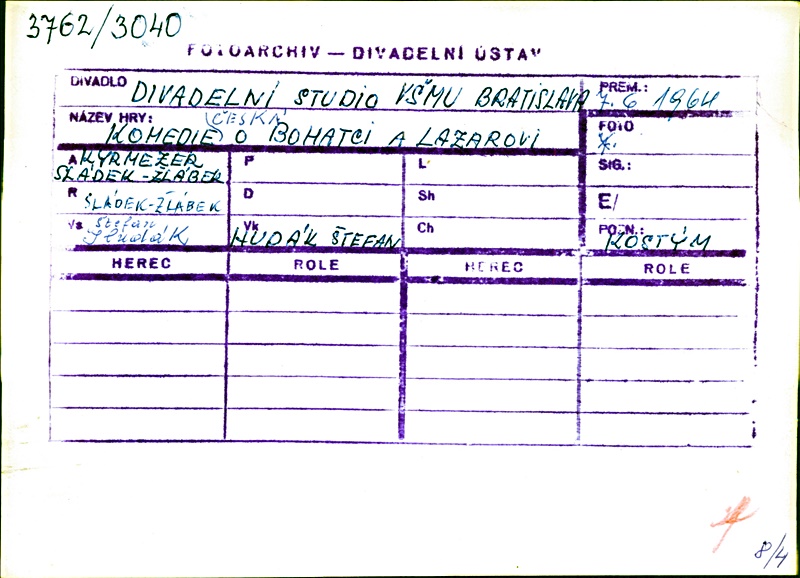 3762/3040
FOTOARCHIV — DIVADELNÍ ÚSTAV
DIVADLO DIVADELNÍ STUDIO VŠMU BRATISLAVA
PREM.: 7. 6 1964
NÁZEV HRY: (ČESKÁ)
KOMEDIE O BOHATCI A LAZAROVI
FOTO
X.
A KYRMEZER
SLÁDEK-ŽLÁBEK
P
L
SIG.:
R SLÁDEK-ŽLÁBEK
D
Sh
E/
Vs Štefan
Hudák
Vk HUDÁK ŠTEFAN
Ch
POZN.: KOSTÝM
HEREC ROLE HEREC ROLE
8/4